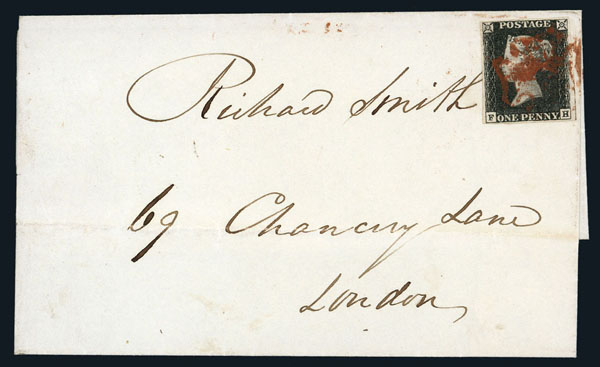 POSTAGE
Richard Smith
F H
ONE PENNY
69 Chancery Lane
London